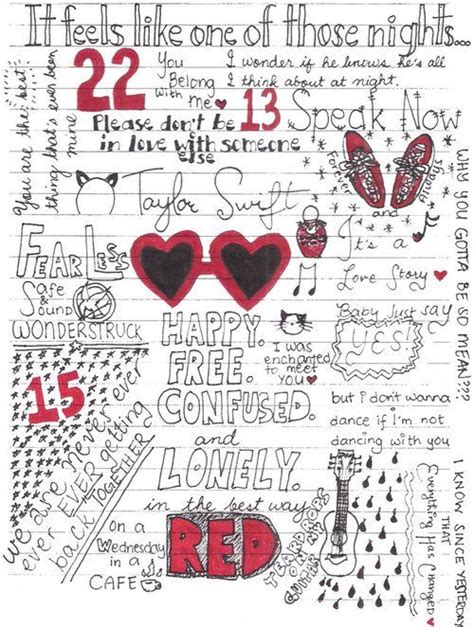 It feels like one of those nights...
You are the best
thing that's ever been
mine
22
You
Belong
with
me
I wonder if he knows he's all
I think about at night.
Please don't be
in love with someone
else
13
Speak Now
Forever
and
always
WHY YOU GOTTA BE SO MEAN???
Taylor Swift
FEARLESS
Safe
&
Sound
WONDERSTRUCK
It's a
Love Story
Baby Just Say
YES!
HAPPY.
FREE.
CONFUSED.
and
LONELY.
in the best way
I was
enchanted
to meet
YOU
15
we are never ever
ever EVER getting
back TOGETHER
but i don't wanna
dance if i'm not
dancing with you
on a
Wednesday
in a
CAFE
RED
TEARDROPS
ON MY
GUITAR
I KNOW SINCE YESTERDAY
THAT
Everything Has Changed